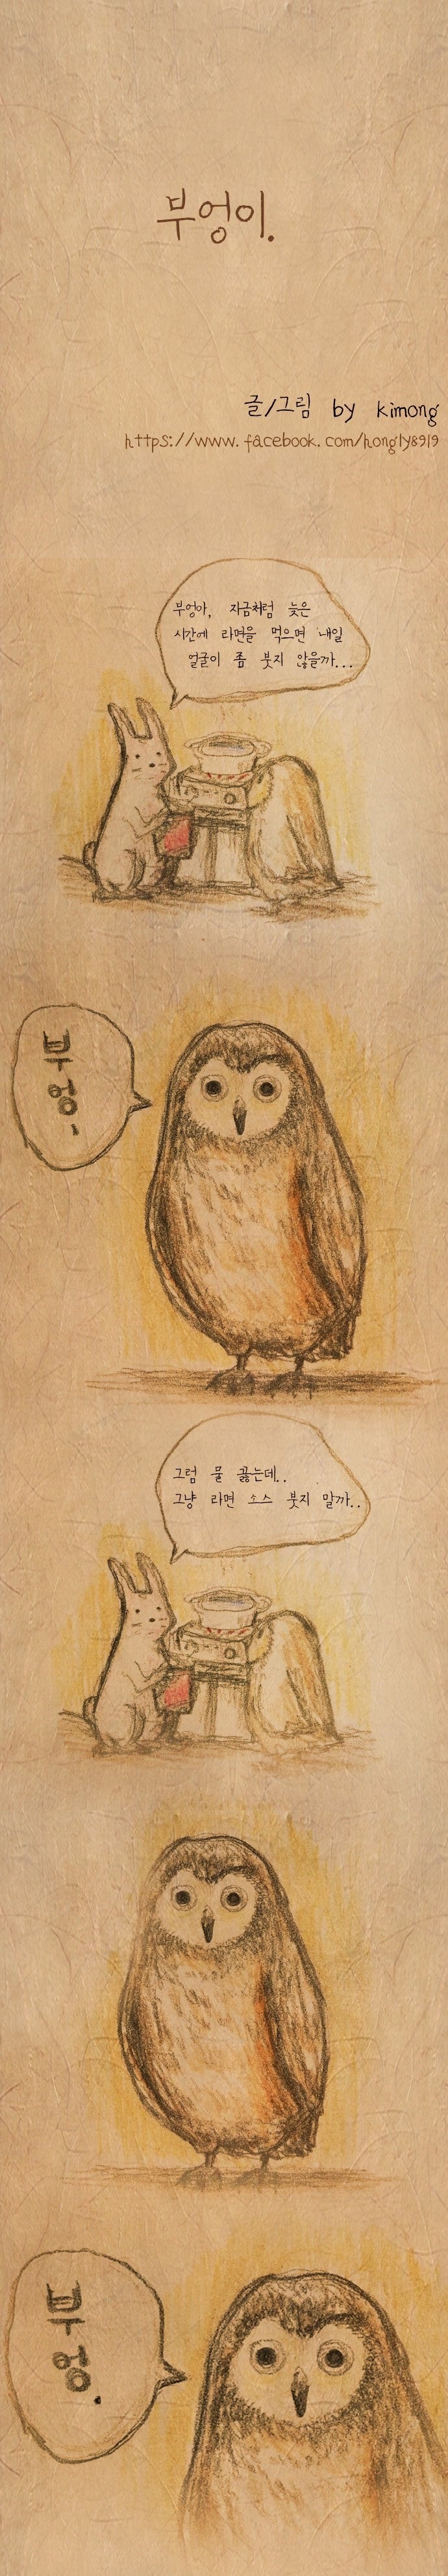 부엉이.
글/그림 by kimong
https://www.facebook.com/hongly8919
부엉아, 지금처럼 늦은
시간에 라면을 먹으면 내일
얼굴이 좀 붓지 않을까...
부
엉,
그럼 물 끓는데..
그냥 라면 소스 붓지 말까..
부
엉.